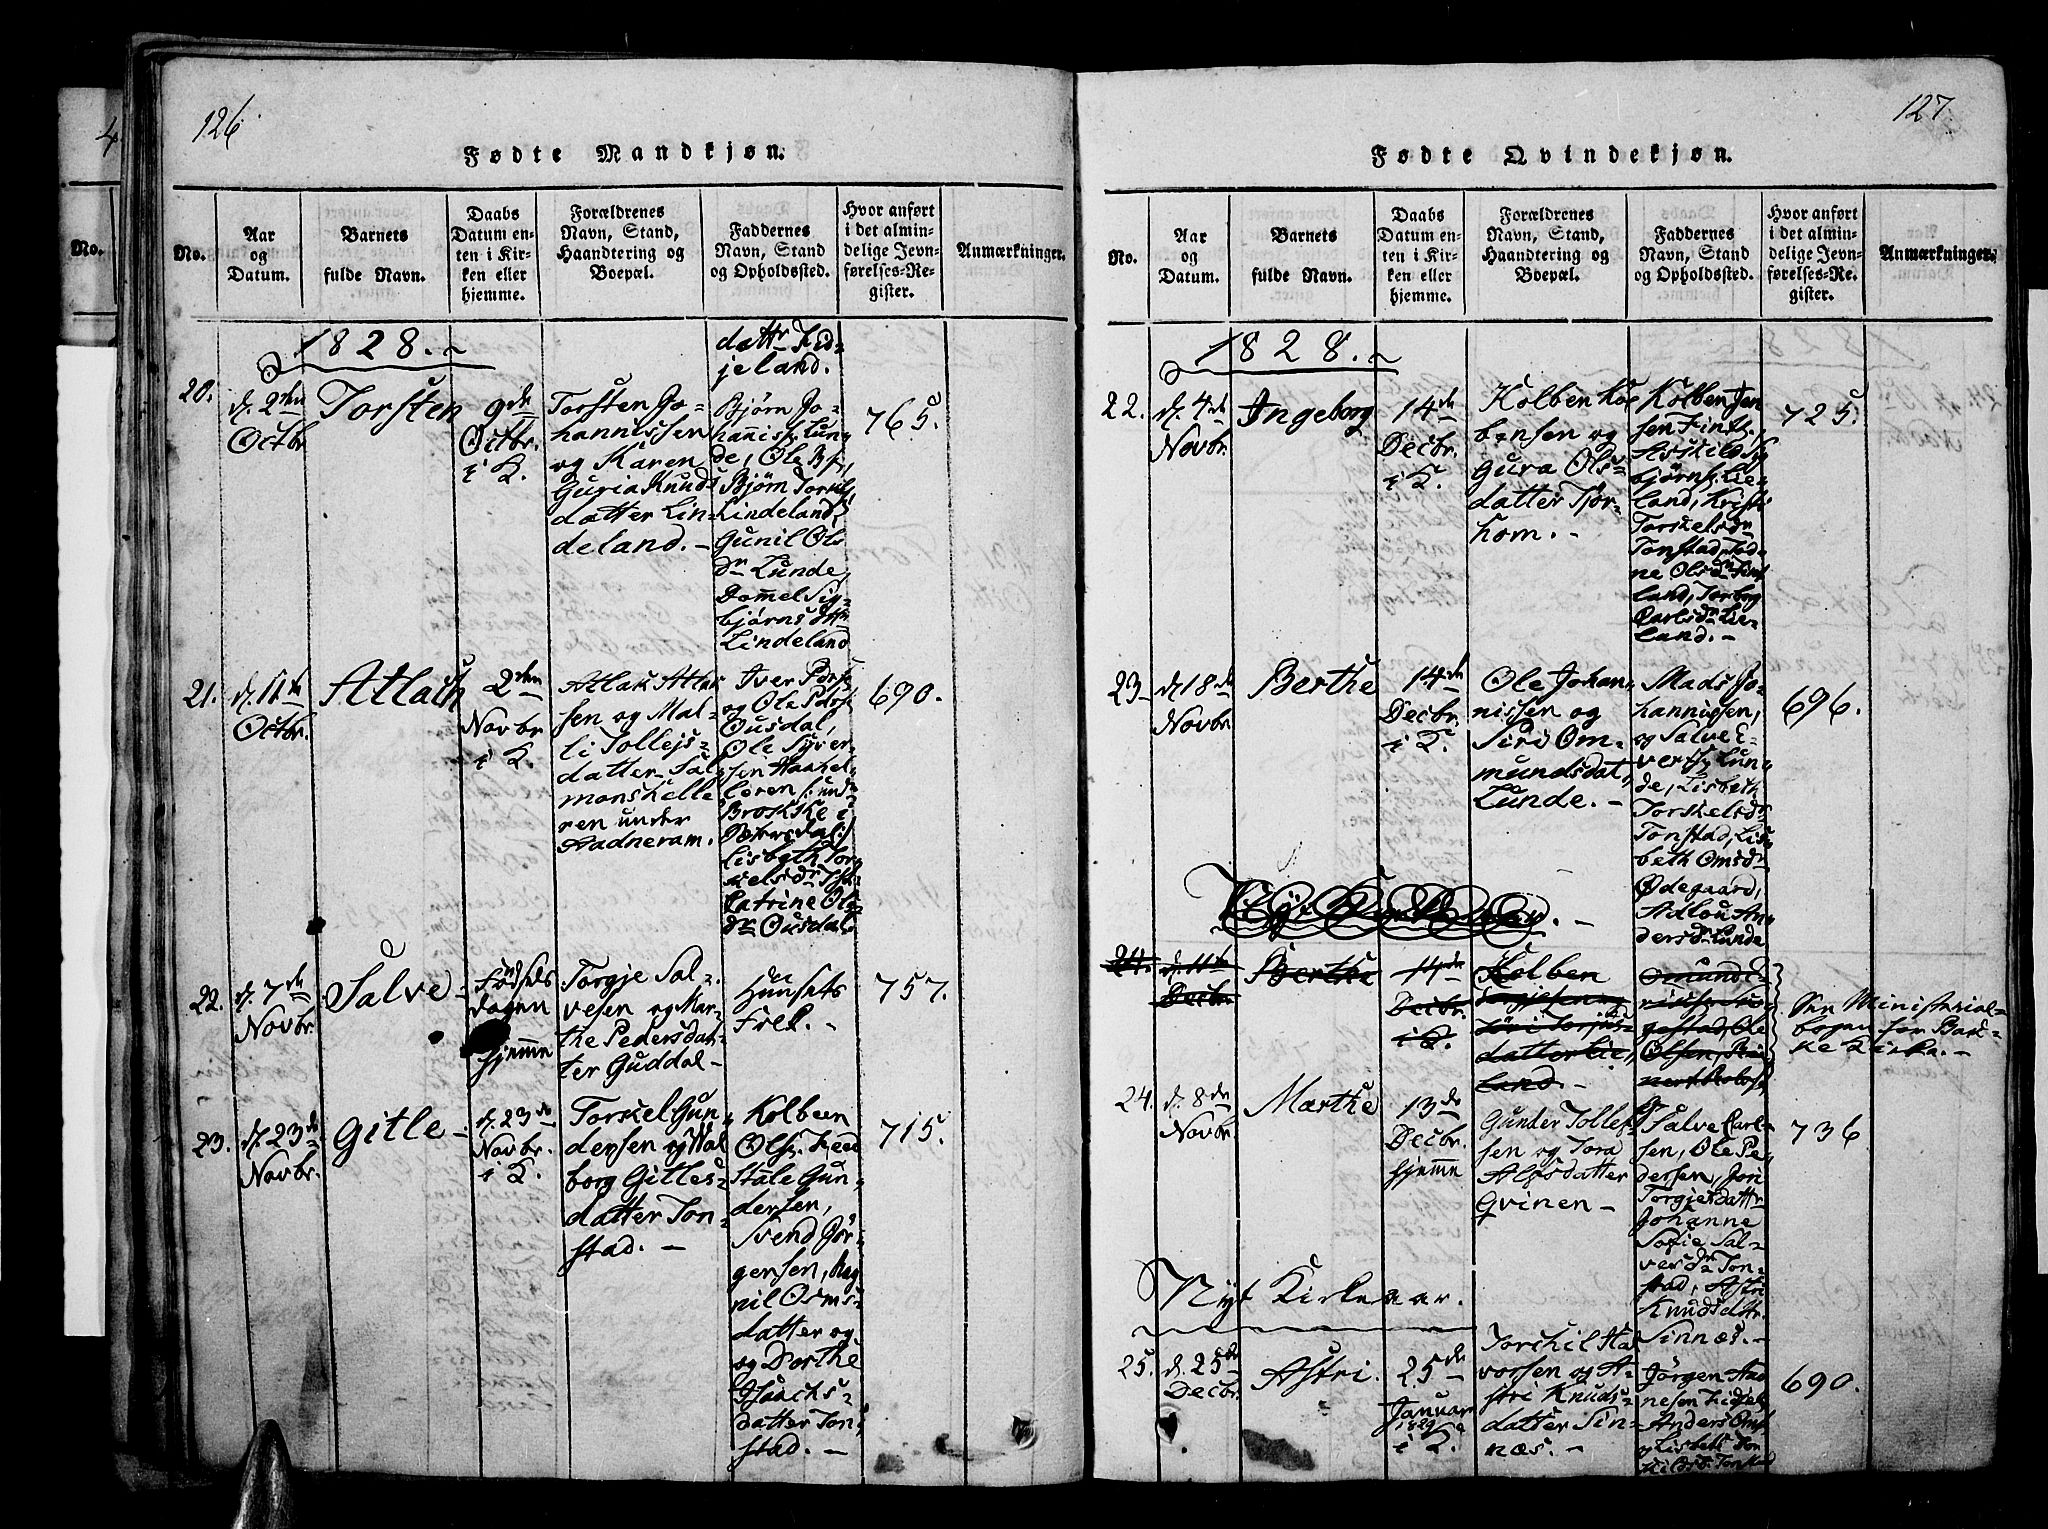 126
Fødte Mandkjøn.
No.
Aar
og
Datum.
Barnets
fulde Navn.
Daabs
Datum en-
ten i Kir-
ken eller
hjemme.
Forældrenes
Navn, Stand,
Haandtering og
Boepæl.
Faddernes
Navn, Stand
og Opholdssted.
Hvor anført
i det almin-
delige Jevn-
førelses-Re-
gister.
Anmærkninger.
1828.
dattr Fid-
jeland.
20.
d. 2den
Octbr
Torsten
9de
Octbr.
i K.
Torsten Jo-
hannissen
og Karen
Guria Knuds
datter Lin-
deland. -
Bjørn Jo-
hanniss. Lun-
de, Ole
Bjørn
Lindeland,
Gunil Ols
dr Lunde,
Dom̅el Sig-
bjørnsdttr
Lindeland
765.
21.
d. 11te
Octbr.
Atlach
2den
Novbr
i K.
Atlak Atlak
sen og Mal-
li Tollejs-
datter Sal
monshelle
ren under
Hadneram.
Iver Pders
og Ole Pders
Ousdal,
Ole Siver-
sen
leren
i
Lisbeth Tor
kelsdr
Catrine Ols
dr Ousdal.
690.
22.
d. 7de
Novbr.
Salve
Fødsels
dagen
hjemme
Torgje Sal-
vesen og Mar-
the Pedersdat-
ter Guddal -
Hunsets
Frel. -
757.
23.
d. 23de
Novbr.
Gitle
d. 23de
Novbr.
i K.
Torkel Gun
dersen og Val
borg Gitles-
datter Ton-
stad. -
Kolbeen
Ols.
Stale Gun-
dersen,
Svend Jør-
gensen, Rag
nil Osms-
datter og
og Dorthe
Isaachs-
datter Ton-
stad. -
715.
127.
Fødte Qvindekjøn.
No.
Aar
og
Datum.
Barnets
fulde Navn.
Daabs
Datum en-
ten i Kir-
ken eller
hjemme.
Forældrenes
Navn, Stand,
Haandtering og
Boepæl.
Faddernes
Navn, Stand
og Opholdssted.
Hvor anført
i det almin-
delige Jevn-
førelses-Re-
gister.
Anmærkninger.
1828.
22.
d. 4de
Novbr.
Ingeborg
14de
Decbr.
i K.
Kolben Kol
bensen og
Gura Ols-
datter Tjør-
hom. -
Kolben Jen
sen
Asskild Sig
bjørns. Lie-
land,
Torkelsdr
Tonstad, Tod-
ne Olsdr
land, Torborg
Carlsdr Lie-
land. -
725.
23
d. 18de
Novbr.
Berthe
14de
Decbr.
i K.
Ole Johan-
nissen og
Siri Om-
mundsdat,
Lunde. -
Mads Jo-
hannissen,
og Salve I-
vers. Lun-
de, Lisbeth
Torkelsdr
Tonstad, Lis
beth Omsdr
Ødegaard,
Adlou An-
dersdr Lunde
696.
24.
d. 11te
Decbr.
Berthe
14de
Decbr.
i K.
Kolben
Torgjesen og
Siri
datter Lie-
land. -
Omund
Ole
Olsen,
See Ministerial-
bogen for Bak-
ke Kirke. -
24.
d. 8de
Novbr.
Marthe
13de
Decbr.
hjemme
Gunder Tollef-
sen og Tora
Alfsdatter
Qvinen -
Salve Carl-
sen, Ole Pe-
dersen, Jori
Torgjesdattr
Johanne
Sofie Sal-
vesdr Ton-
stad, Astri
Knudsdttr.
Sinnæs. -
736
Nyt Kirkeaar.
25.
d. 25de
Decbr.
Astri.
25de
Januar
1829
i K.
Torchil Hal
vorsen og A-
stri Knuds-
datter Sin-
næs. -
Jørgen Aad
nesen
Anders
Lisbet Tor
kildsd. Tonstad
690.